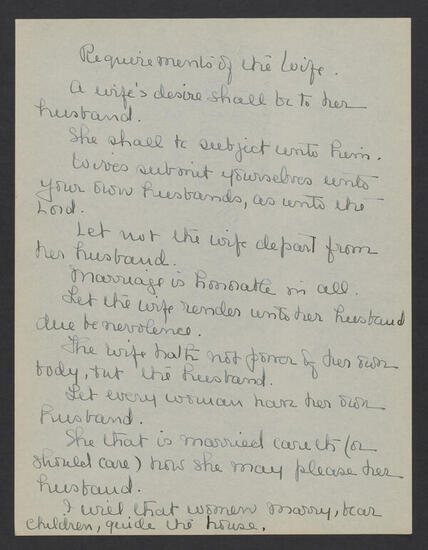 Requirements of the Wife.
A wife's desire shall be to her
husband.
She shall be subject unto him.
Wives submit yourselves unto
your own husbands, as unto the
Lord.
Let not the wife depart from
her husband.
Marriage is honorable in all.
Let the wife render unto her husband
due benevolence.
The wife hath not power of her own
body, but the husband.
Let every woman have her own
husband.
She that is married careth (or
should care) how she may please her
husband.
I will that women marry, bear
children, guide the house.